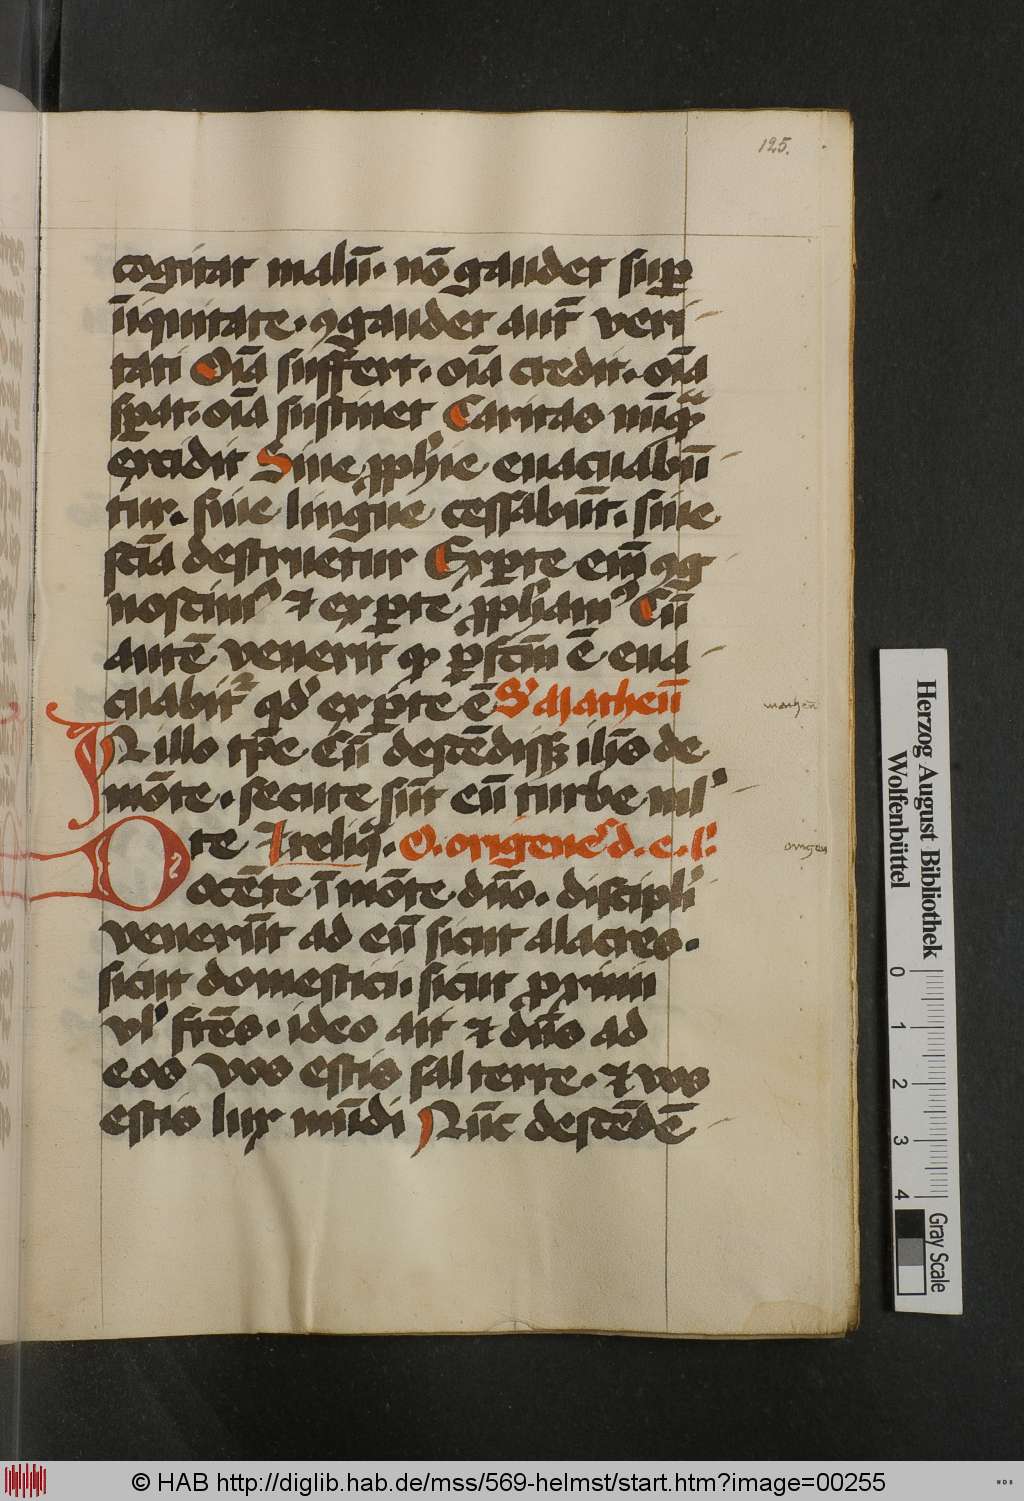 125.
cogitat malū. nō gaudet sup̄
īiquitate. ꝯgaudet aūt veri
tati Oīa suffert. oīa credit. oīa
sp̄at. oīa sustinet Caritas nūqᷓ
excidit Siue ꝓph̄ie euacuabū
tur. siue lingue cessabūt. siue
scīa destruetur Ex ꝑte eīm ꝯg
noscimꝰ ⁊ ex ꝑte ꝓph̄amꝰ Cū
autē venerit qꝭ ꝑfcīn ē eua
cuabit᷑ qd̓ ex ꝑte ē S Matheū
IN illo tꝑe Cū descēdissꝫ ih̄s de
mōte. secute sūt eū turbe ml̓
te ⁊ reliq̄. O. origenes̓ d. e. l.
Docēte ī mōte dn̄o. discipl̓i
venerūt ad eū sicut alacres.
sicut domestici. sicut ꝓximi
vl̓ frēs. ideo ait ⁊ dn̄s ad
eos Vos estis sal terre. ⁊ vos
estis lux mūdi Nūc descēdē
matheū
origen
Herzog August Bibliothek
Wolfenbüttel
0 1 2 3 4
Gray Scale
© HAB http://diglib.hab.de/mss/569-helmst/start.htm?image=00255